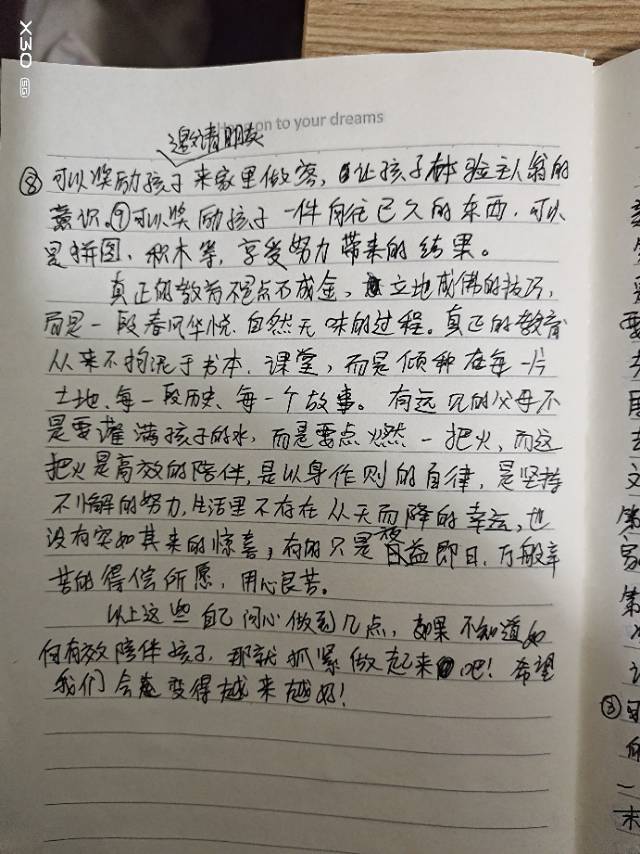 X30 5G
on to your dreams
邀请朋友
⑧可以奖励孩子来家里做客,让孩子体验主人翁的
意识。⑨可以奖励孩子一件向往已久的东西,可以
是拼图、积木等,享受努力带来的结果。
真正的教育不是点石成金,立地成佛的技巧,
而是一段春风华悦、自然无味的过程。真正的教育
从来不拘泥于书本、课堂,而是倾种在每一片
土地、每一段历史、每一个故事。有远见的父母不
是要灌满孩子的水,而是要点燃一把火,而这
把火是高效的陪伴,是以身作则的自律,是坚持
不懈的努力,生活里不存在从天而降的幸运,也
没有突如其来的惊喜,有的只是夜益即日,万般辛
苦的得偿所愿,用心良苦。
以上这些自己问心做到几点,如果不知道如
何有效陪伴孩子,那就抓紧做起来吧!希望
我们会变得越来越好!